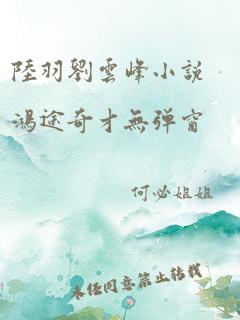 陸羽劉雲峰小説
鴻途奇才無弹窗
何必姐姐
未经同意禁止转载